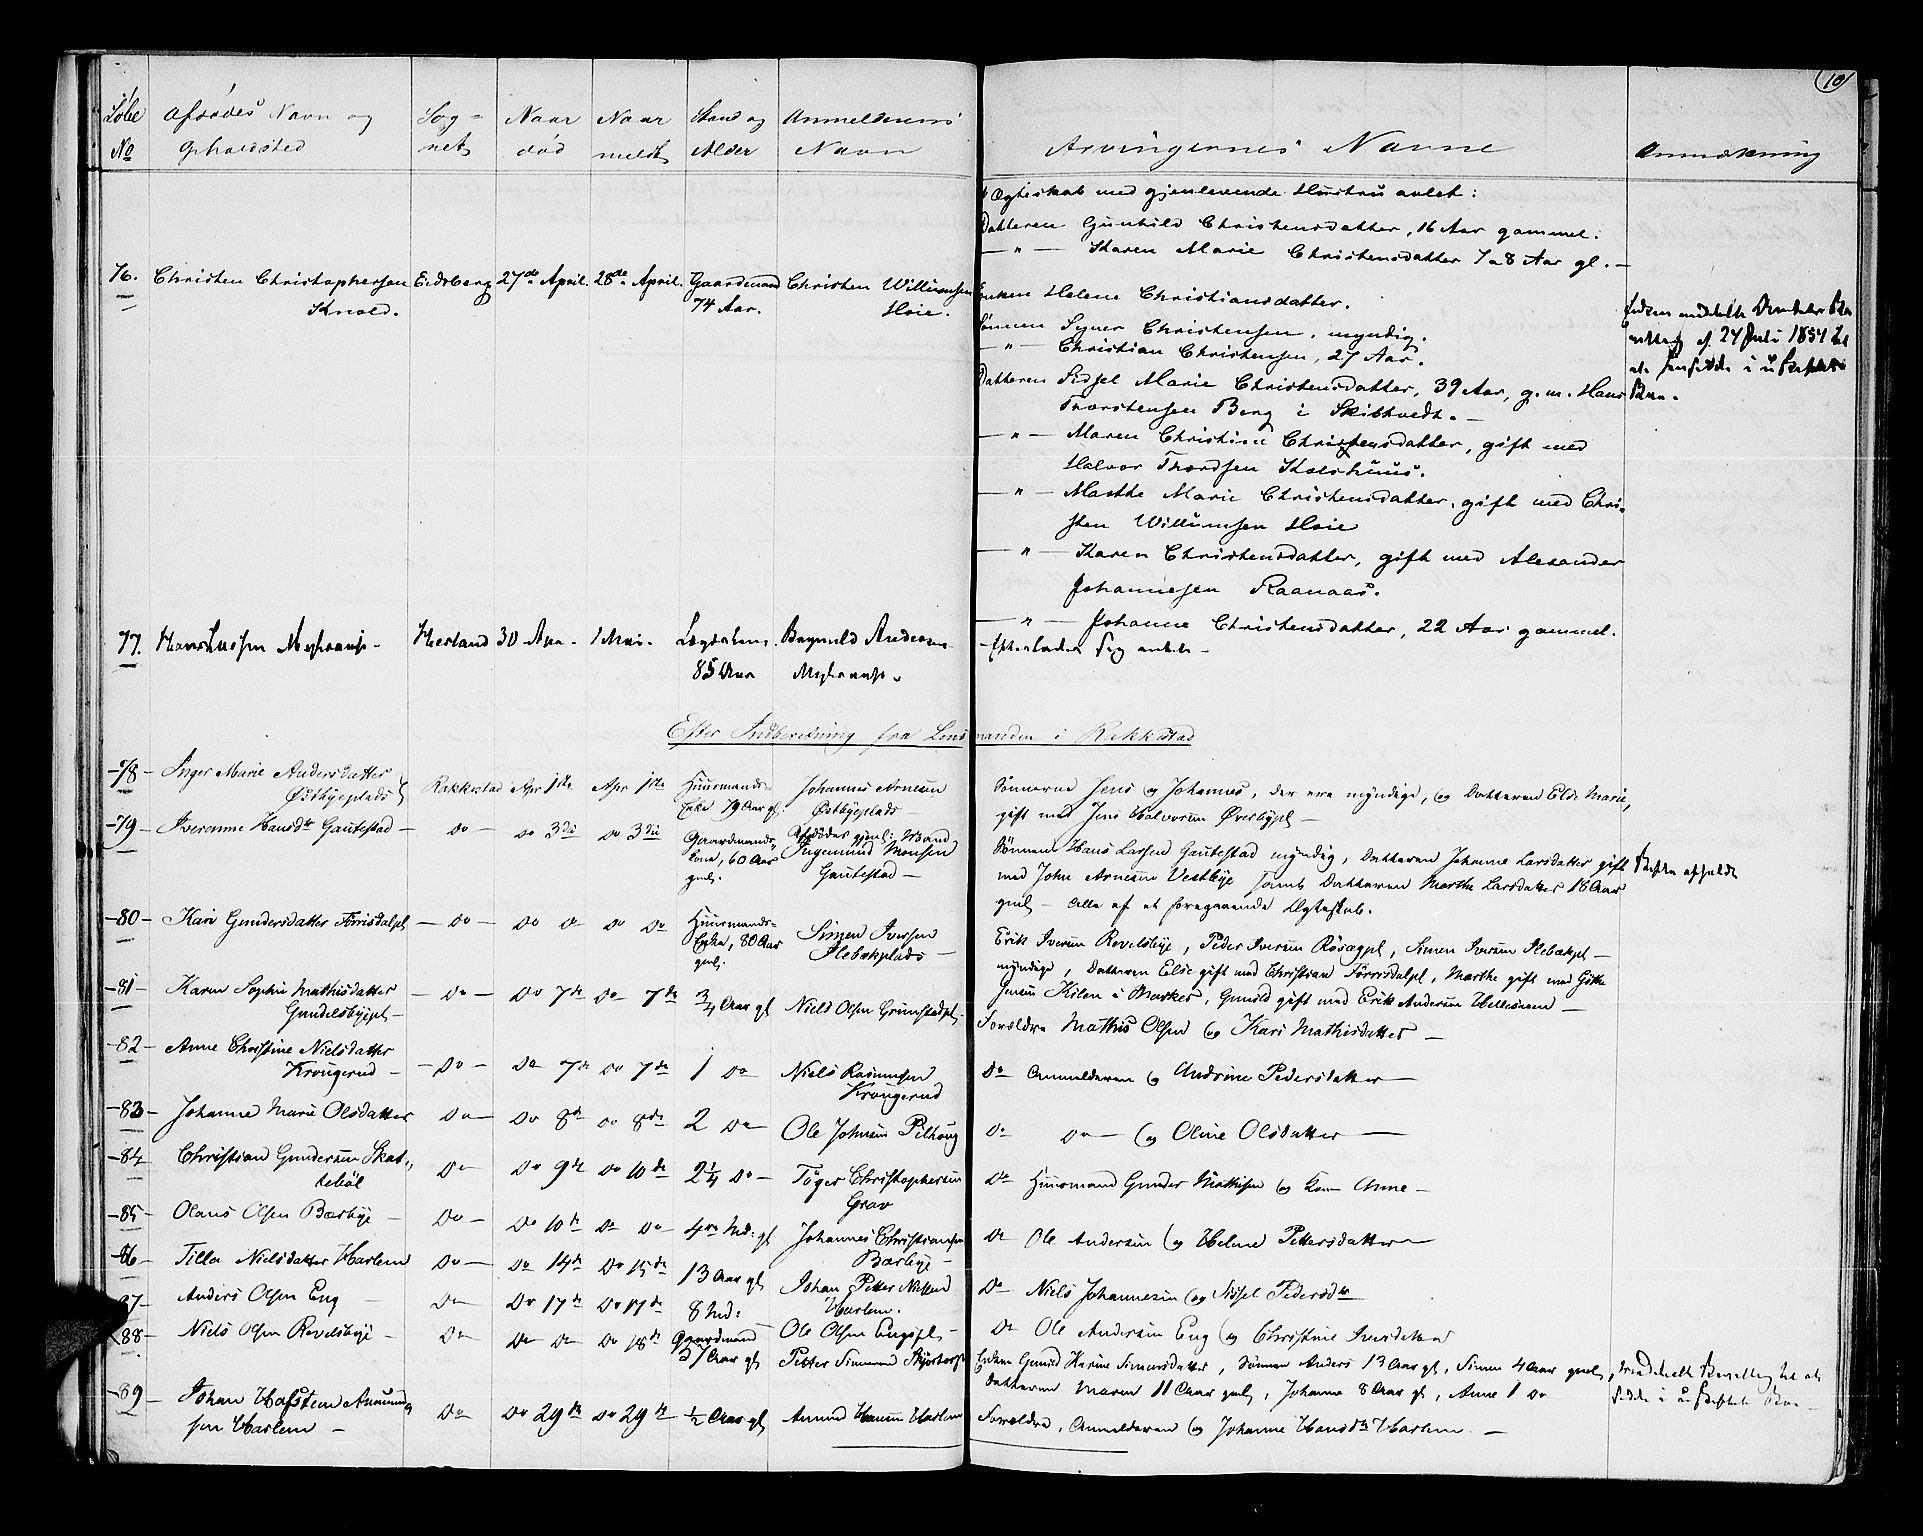 10
Løbe No
Afdødes Navn og Opholdsted
Sognet
Naar død
Naar meldt
Stand og Alder
Anmelderens Navn
Arvingernes Navne
Anmærkning
Ægteskab med gjenlevende Hustru avlet:
Datteren Gunhild Christensdatter, 16 Aar gammel.
—"— Karen Marie Christensdatter 7 a 8 Aar gl. —
76. Christen Christophersen Eidsberg 27de April. 28de April. Gaardmand Christen Willumsen
Knold. 74 Aar. Høie.
Enken Helene Christiansdatter.
Sønnen Syver Christensen, myndig.
—"— Christian Christensen, 27 Aar.
Datteren Sidsel Marie Christensdatter, 39 Aar, g. m. Hans
Thorstensen Berg i Skibtvedt. —
—"— Maren Christine Christensdatter, gift med
Halvor Thordsen Kolshuus.
—"— Marthe Marie Christensdatter, gift med Chri-
sten Willumsen Høie
—"— Karen Christensdatter, gift med Alexander
Johannesen Raanaas.
—"— Johanne Christensdatter, 22 Aar gammel.
Enken meddelt
24 Juli 1854
77. Hærland 30 Apr. 1 Mai. Lægdslem. Andersen
85 Aar
Efterlader sig intet —
Efter Indberetning fra Lensmanden i Rakkestad
—78— Inger Marie Andersdatter
Østbyeplads Rakkestad Apr 1ste Apr 1ste Huusmands- Johannes Arnesen
Enke 79 Aar gl Østbyeplads
Sønnerne Jens og Johannes, der ere myndige, og Datteren Else Marie,
gift med Jens Halvorsen Øverbypl —
—79— Hansdtr Gautestad — Do — Do 3die Do 3die Gaardmands- Afdødes gjenl: Mand
kone, 60 Aar Ingemund Monsen
gml. Gautestad —
Sønnen Hans Larsen Gautestad myndig, Datteren Johanne Larsdatter gift
med John Arnesen Vestbye samt Datteren Marthe Larsdatter 18 Aar
gml — Alle af et foregaaende Ægteskab.
Skifte afholdt
—80— Kari Gundersdatter — Do — Do Do Do Do Huusmands- Simen Iversen
Enke, 80 Aar Flebækplads —
gml.
Erik Iversen Revelsbye, Peder Iversen Simen Iversen Flebækpl —
myndige, Datteren Else gift med Christian Marthe gift med
Jensen Kilen i Marker, Gunild gift med Erik Andersen —
—81— Karen Sophie Mathisdatter
Gundelsbyepl — Do — Do 7de Do 7de 3/4 Aar gl Niels Olsen Grimstadpl —
Forældre Mathis Olsen og Kari Mathisdatter —
—82— Anne Christine Nielsdatter
Krougerud — Do — Do 7de Do 7de 1 Do Niels Rasmussen
Krougerud
Do Anmelderen og Andrine Pedersdatter —
—83— Johanne Marie Olsdatter Do — Do 8de Do 8de 2 Do — Ole Johnsen Pilhoug
Do Do — og Oline Olsdatter —
—84— Christian Gundersen Skat-
tebøl Do — Do 9de Do 10de 2 1/4 Do — Tøger Christophersen
Grav
Do Huusmand Gunder Mathisen og Kone Anne —
—85— Olaus Olsen Bærbye — Do — Do 10de Do Do 4re Md: gl Johannes Christiansen
Bærbye —
Do Ole Andersen og Helene Pettersdatter —
—86— Tilla Nielsdatter Harlem Do — Do 14de Do 15de 13 Aar gl Johan Petter Nielsen
Harlem.
Do Niels Johannesen og Sidsel Pedersdtr
—87— Anders Olsen Eng — Do — Do 17de Do 17de 8 Md: Ole Olsen Engspl —
Do Ole Andersen Eng og Christine Iversdatter
—88— Niels Olsen Revelsbye — Do — Do Do Do 18de Gaardmand Petter Simensen
37 Aar gl
Enken Gunild Karine Simensdatter, Sønnen Anders 13 Aar gl, Simen 4 Aar gml,
Datteren Maren 11 Aar gml, Johanne 8 Aar gl, Anne 1 Do
—89— Johan Hafsten Amund-
sen Harlem — Do — Do 29de Do 29de 1/2 Aar gl Amund Hansen Harlem
Forældre, Anmelderen og Johanne Hansdtr Harlem. —